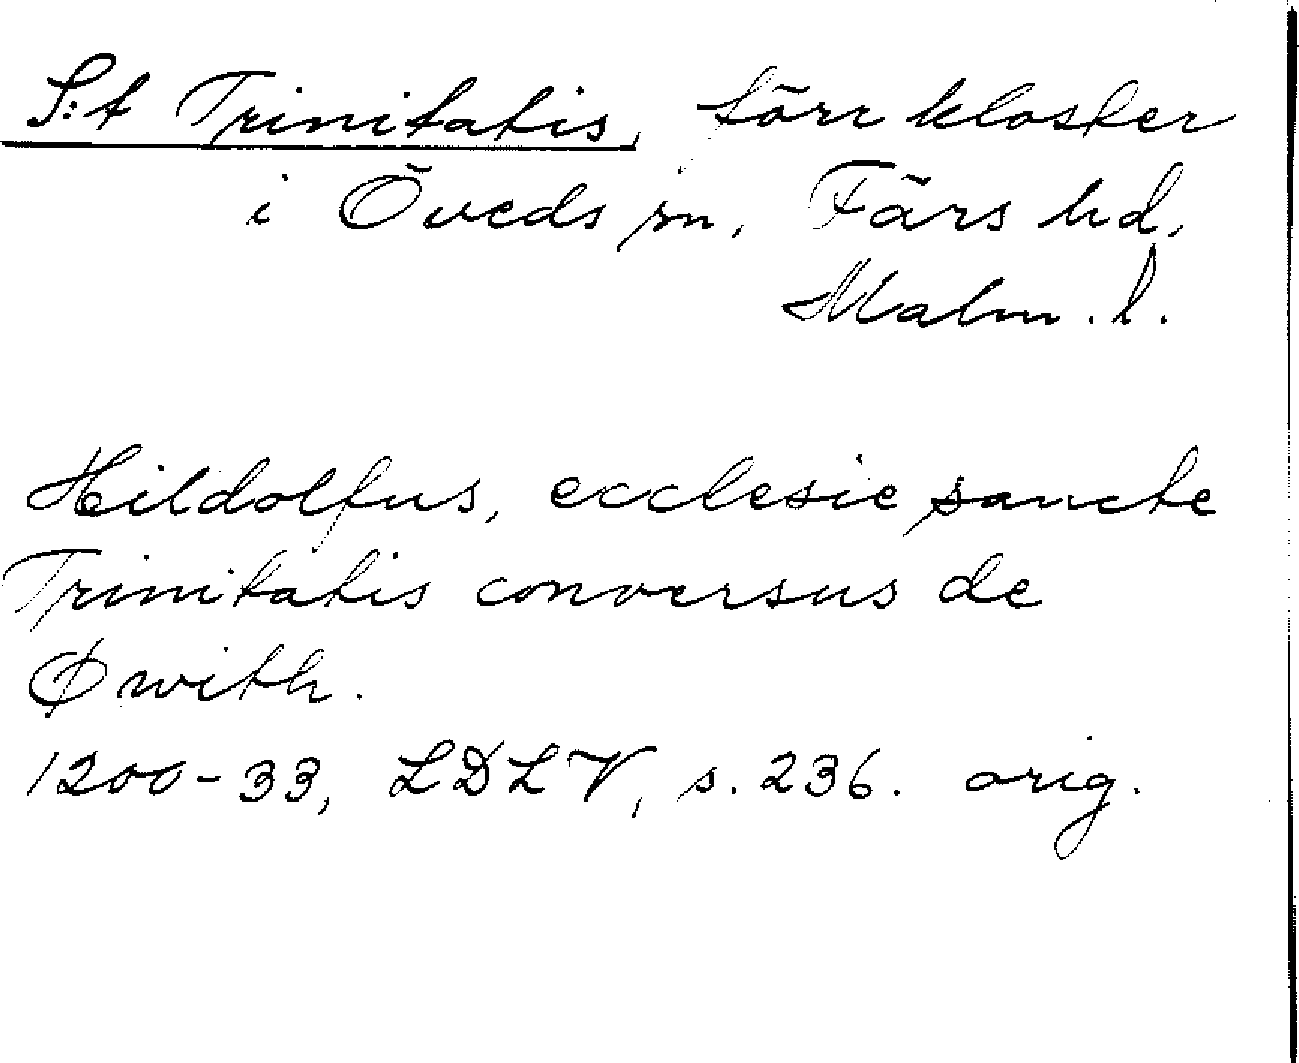 S:t Trinitatis, förr kloster
i Öveds sn, Färs hd,
Malm. l.
Hildolfus, ecclesie sancte
Trinitatis conversus de
Øwith.
1200-33, LDLV, s. 236. orig.